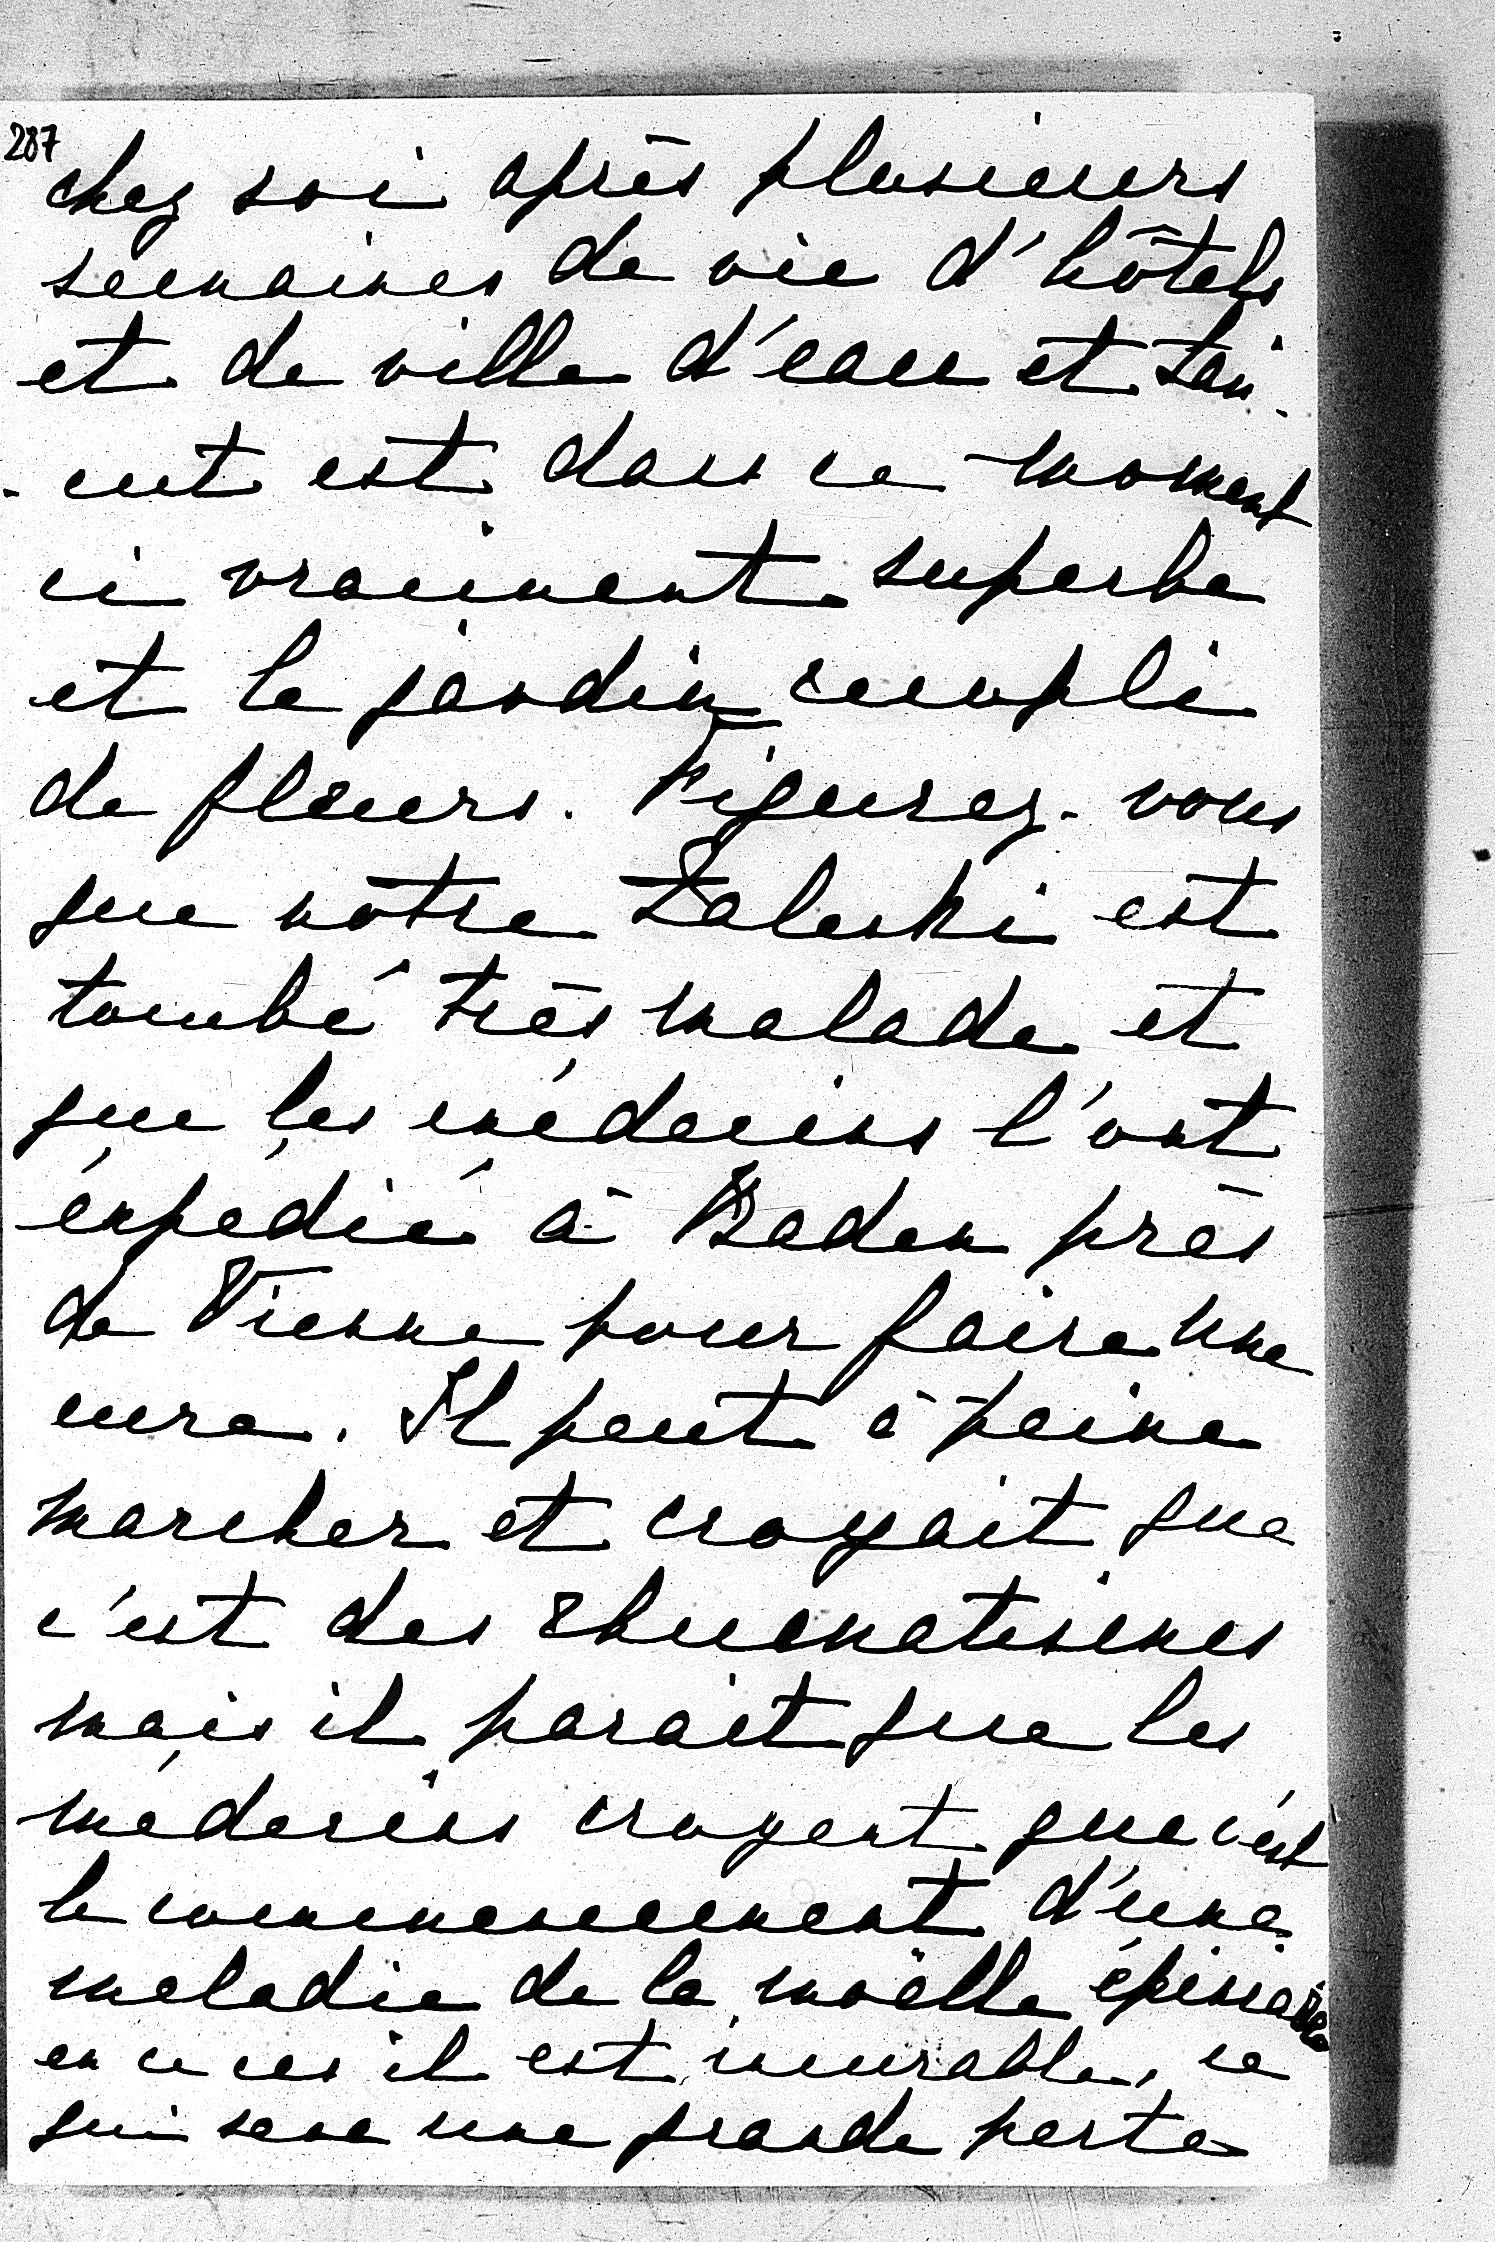 287
chez soi après plusieurs
semaines de vie d'hôtels
et de ville d'eau et Lan-
-cut est dans ce moment
ci vraiment superbe
et le jardin rempli
de fleurs. Figurez-vous
que nôtre Zaleski est
tombé très malade et
que les médecins l'ont
éxpedié à Baden près
de Vienne pour faire une
cure. Il peut à peine
marcher et croyait que
c'est des rhumatismes
mais il parait que les
médecins croyent que c'est
le commencement d'une
maladie de la moëlle épinière
en ce cas il est incurable, ce
qui sera une grande perte